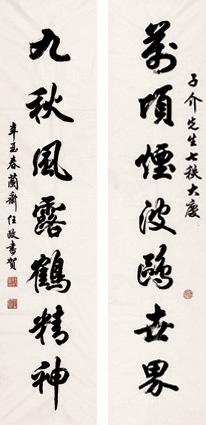 子介先生七秩大慶
萬頃煙波鷗世界
九秋風露鶴精神
辛酉春蘭齋任政書賀